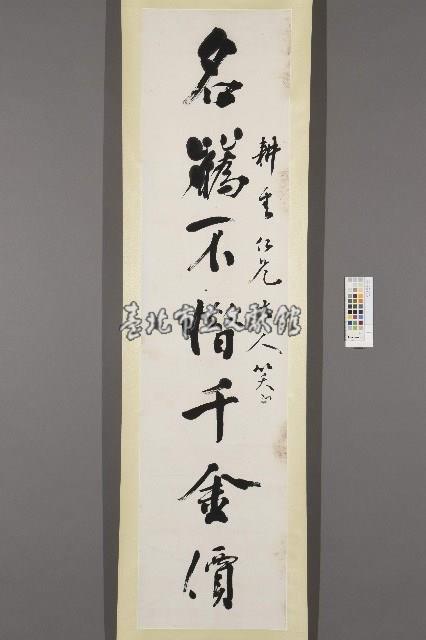 耕雲仁兄大人笑正
名不惜千金價
臺北市立文獻館